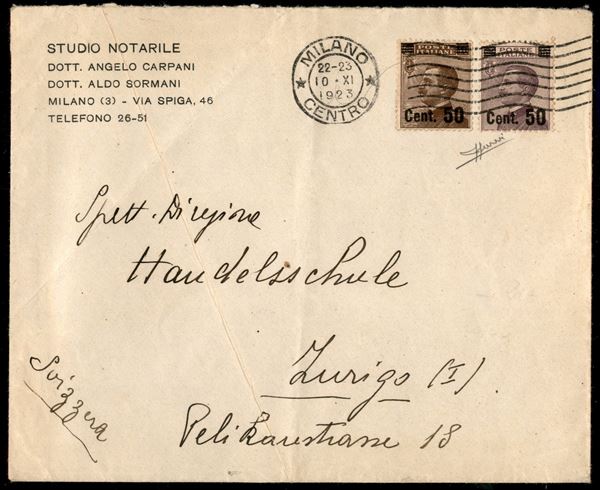 STUDIO NOTARILE
DOTT. ANGELO CARPANI
DOTT. ALDO SORMANI
MILANO (3) - VIA SPIGA, 46
TELEFONO 26-51
MILANO
22-23
10 · XI
1923
CENTRO
POSTE
ITALIANE
Cent. 50
POSTE
ITALIANE
Cent. 50
Spett. Direzione
Handelsschule
Zurigo (I)
Svizzera
Pelikanstrasse 18